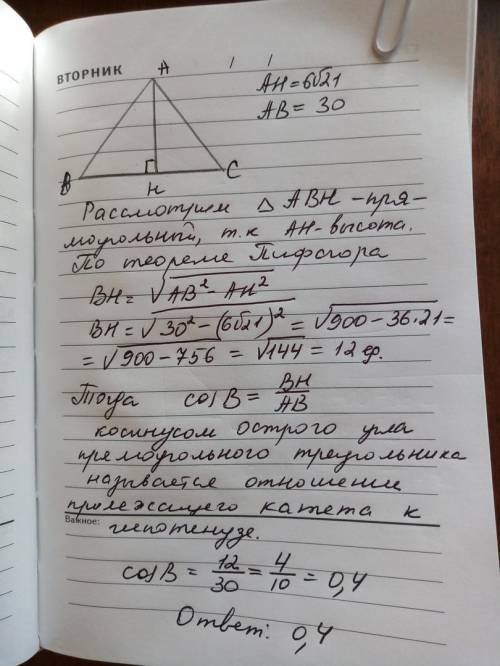 ВТОРНИК
A
AH = 6√21
AB = 30
B
C
H
Рассмотрим △ ABH - пря-
моугольный, т.к AH-высота.
По теореме Пифагора
BH = √AB² - AH²
BH = √30² - (6√21)² = √900 - 36·21 =
= √900 - 756 = √144 = 12 ед.
Тогда cosB = BH/AB
косинусом острого угла
прямоугольного треугольника
называется отношении
прилежащего катета к
Важное:
гипотенузе.
cosB = 12/30 = 4/10 = 0,4
Ответ: 0,4